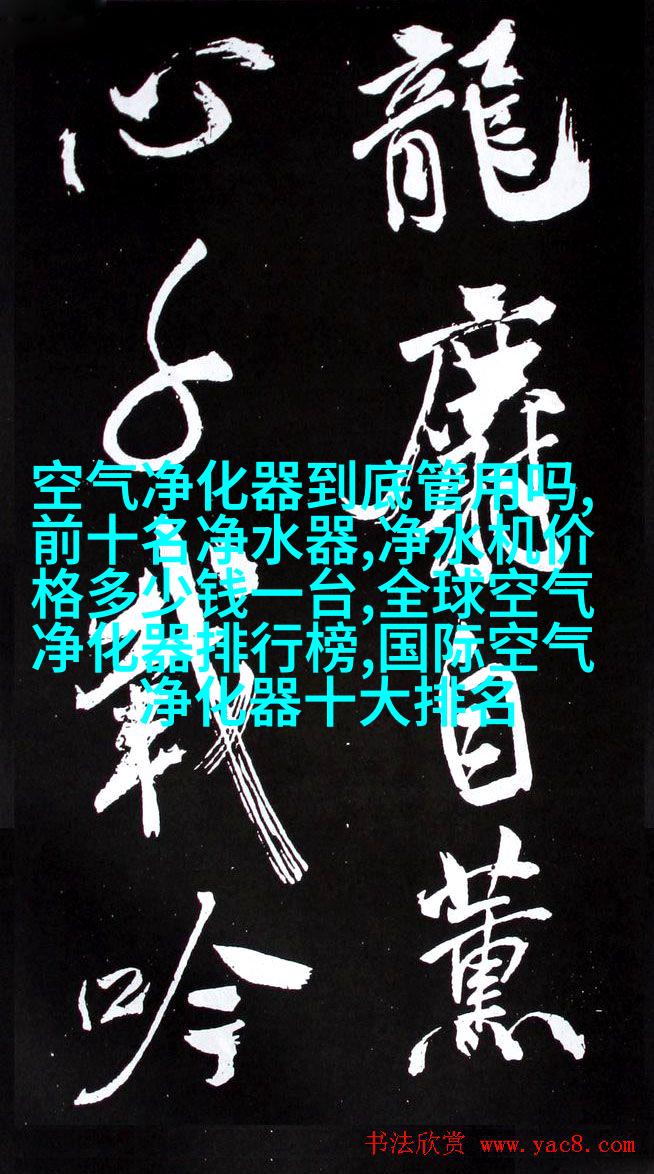 龍麝自薰
心千載吟
空气净化器到底管用吗,
前十名净水器,净水机价
格多少钱一台,全球空气
净化器排行榜,国际空气
净化器十大排名
书法欣赏 www.yac8.com